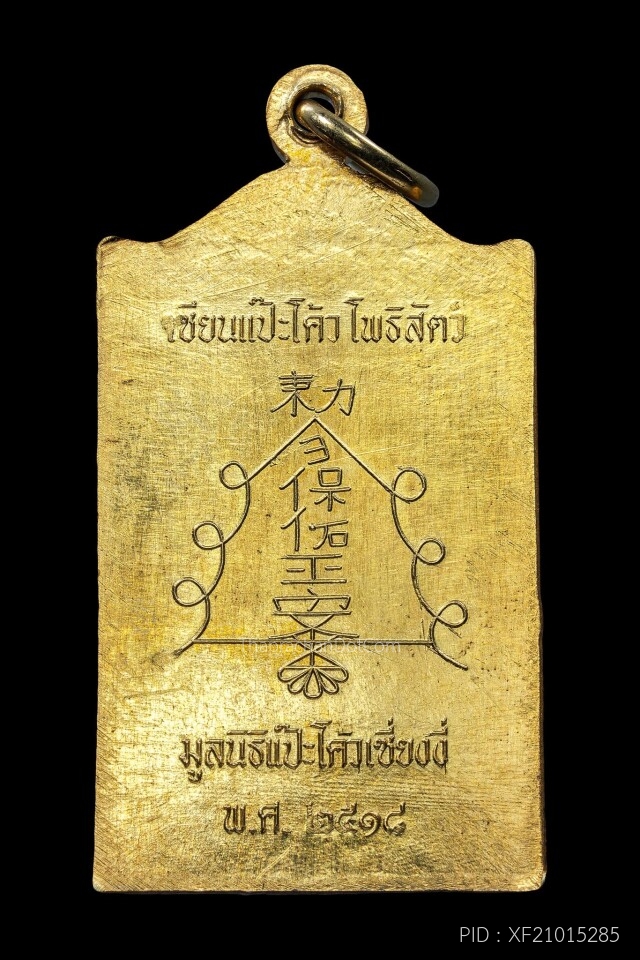 เซียนแป๊ะโค้ว โพธิสัตว์
勅
令
保
佑
平
安
มูลนิธิแป๊ะโค้วเซี่ยงงี่
พ.ศ. ๒๕๑๘
PID : XF21015285